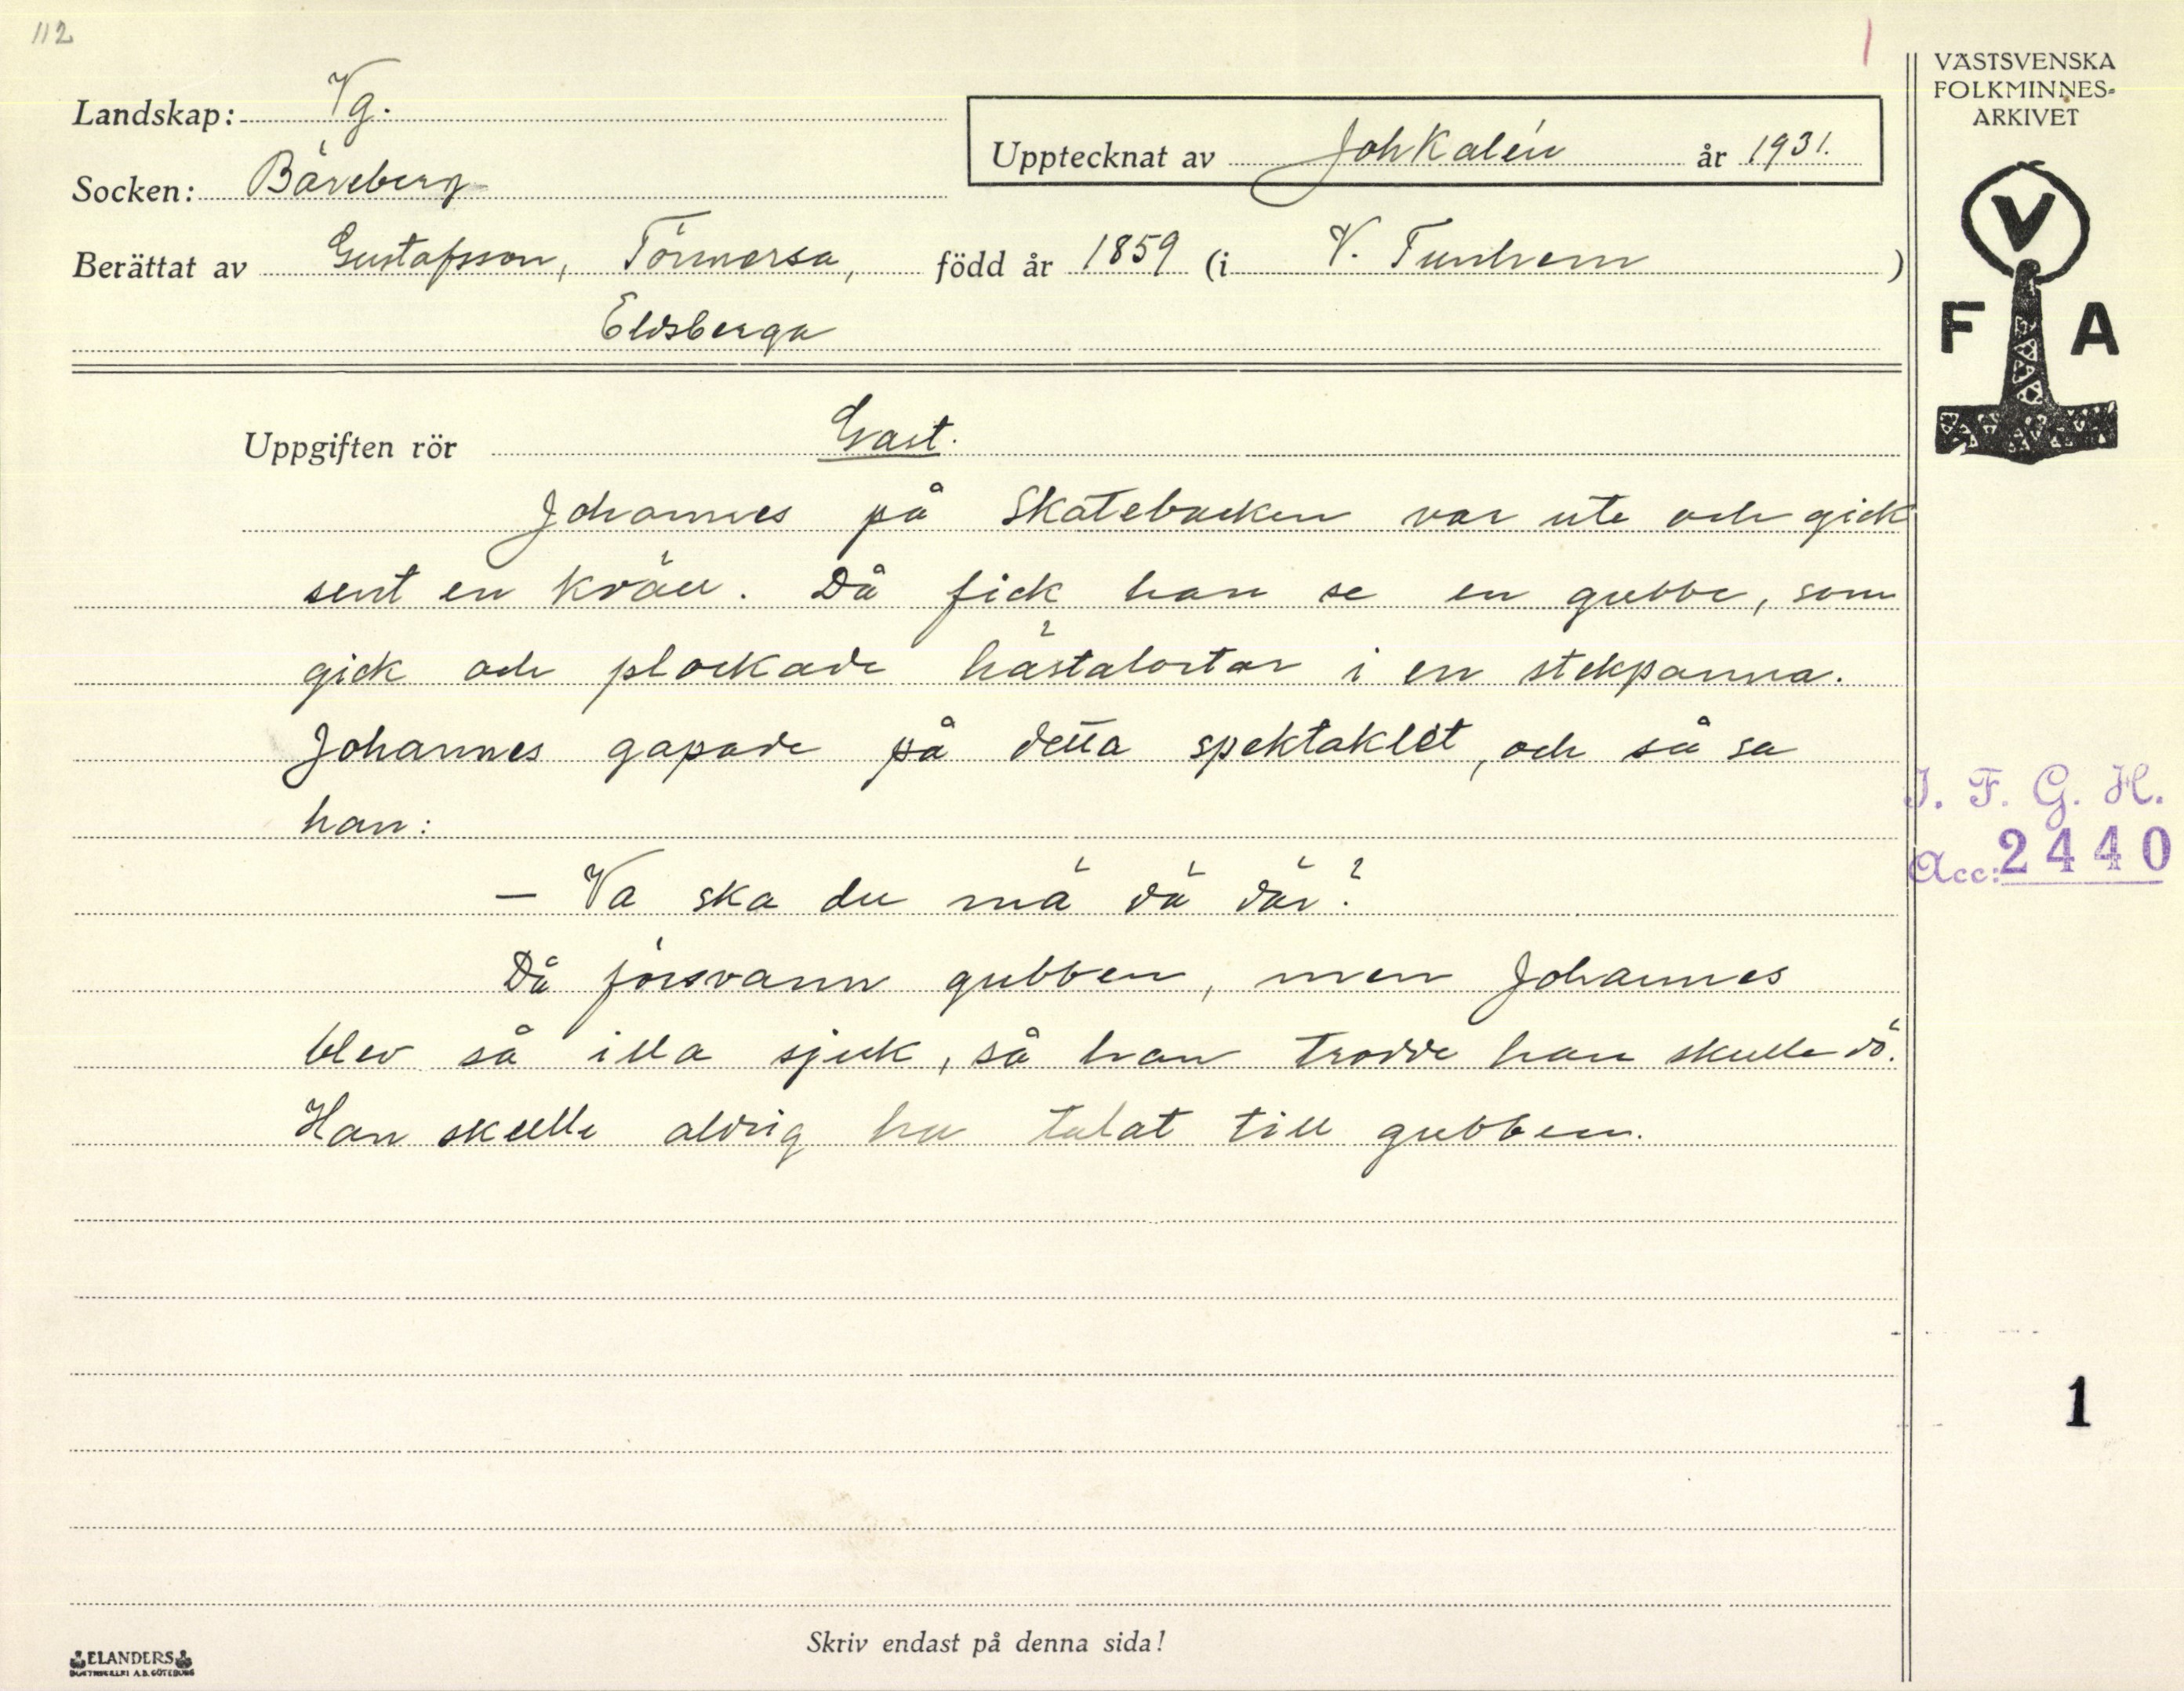 112
Landskap: Vg.
Socken: Bäreberg
Upptecknat av Joh Kalén år 1931.
Berättat av Gustafsson, Törmersa, född år 1859 (i V. Tunhem)
Eldsberga
VÄSTSVENSKA
FOLKMINNES-
ARKIVET
V
F A
Uppgiften rör Gast.
Johannes på Skatebacken var ute och gick
sent en kväll. Då fick han se en gubbe, som
gick och plockade hästalortar i en stekpanna.
Johannes gapade på detta spektaklet, och så sa
han:
— Va ska du mä dä där?
Då försvann gubben, men Johannes
blev så illa sjuk, så han trodde han skulle dö.
Han skulle aldrig ha talat till gubben.
I. F. G. H.
Acc: 2440
1
Skriv endast på denna sida!
ELANDERS
BOKTRYCKERI A.B. GÖTEBORG